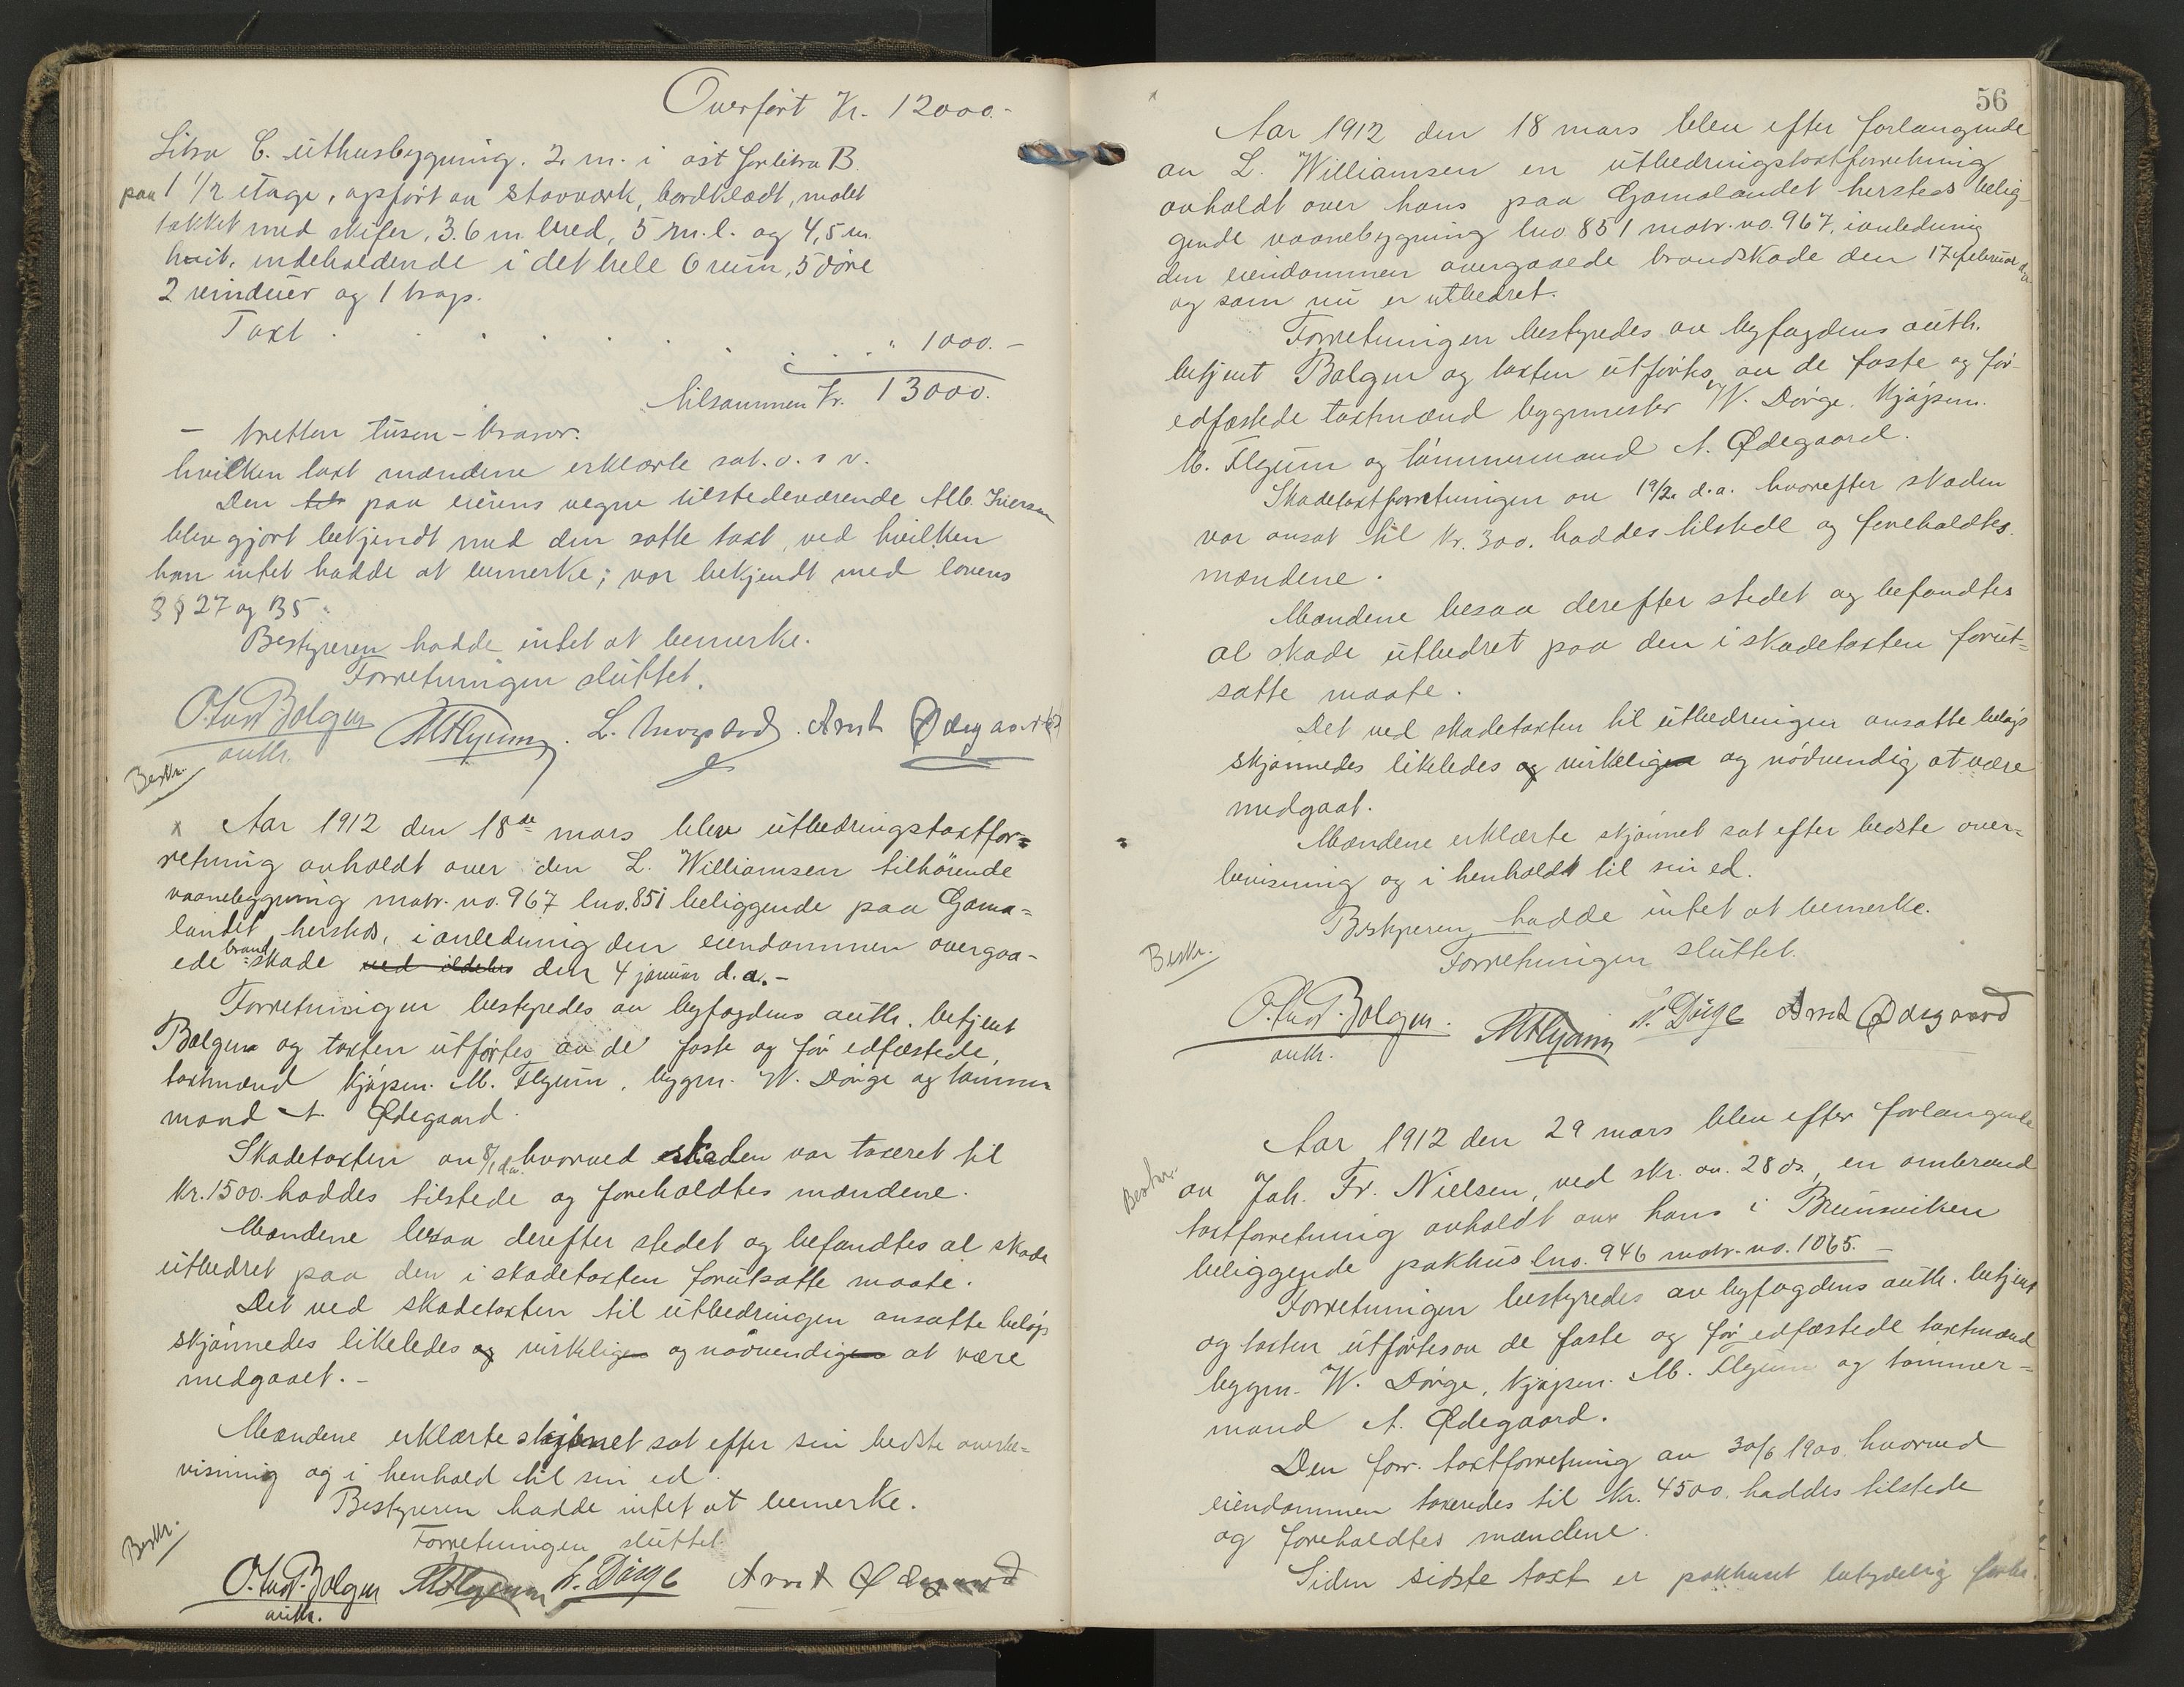 Overført Kr. 12000.-
Litra C. uthusbygning. 2 m. i øst for litra B.
paa 1 1/2 etage, opført av stavværk, bordklædt, malet
tækket med skifer, 3.6 m bred, 5 m. l. og 4,5 m.
høit, indeholdende i det hele 6 rum, 5 døre
2 vinduer og 1 trap.
Taxt . . . . . . . . . " 1000.-
tilsammen Kr. 13000.
- tretten tusen - kroner.
hvilken taxt mændene erklærte sat. o. s v.
Den paa eierens vegne tilstedeværende Alb. Iversen
blev gjort bekjendt med den satte taxt, ved hvilken
han intet hadde at bemerke; var bekjendt med lovens
§§ 27 og 35.
Bestyreren hadde intet at bemerke.
Forretningen sluttet.
O. Bolgen M Flyum. L. Arnt Ødegaard
auth.
Beskr.
x Aar 1912 den 18de mars blev utbedringstaxtfor=
retning avholdt over den L. Williamsen tilhörende
vaanebygning matr. no. 967 lno. 851 beliggende paa Goma=
landet hersteds, i anledning den eiendommen overgaa-
ede brand=skade ved ildebr den 4 januar d.a.-
Forretningen bestyredes av byfogdens auth. betjent
Bolgen og taxten utførtes av de faste og før edfæstede,
taxtmænd kjøpm. M. Flyum, bygm. W. Dørge og tømmer
mand A. Ødegaard.
Skadetaxten av 8/1 d.a. hvorved skaden var taxeret til
kr. 1500. haddes tilstede og foreholdtes mændene.
Mændene besaa derefter stedet og befandtes al skade
utbedret paa den i skadetaxten forutsatte maate.
Det ved skadetaxten til utbedringen ansatte beløp
skjønnedes likeledes og virkeligen og nødvendigen at være
medgaaet.-
Mændene erklærte skjønnet sat efter sin bedste overbe=
visning og i henhold til sin ed.
Bestyreren hadde intet at bemerke.
Forretningen sluttet.
Beskr.
O. Bolgen M Flyum W. Dørge Arnt Ødegaard
auth.
56
Aar 1912 den 18 mars blev efter forlangende
av L. Williamsen en utbedringstaxtforretning
avholdt over hans paa Gomalandet hersteds belig-
gende vaanebygning lno 851 matr. no. 967, i anledning
den eiendommen overgaaede brandskade den 17 februar d.a.
og som nu er utbedret.
Forretningen bestyredes av byfogdens auth.
betjent Bolgen og taxten utførtes av de faste og før-
edfæstede taxtmænd bygmester W. Dørge, kjøpm.
M. Flyum og tømmermand A. Ødegaard.
Skadetaxtforretningen av 19/2. d.a. hvorefter skaden
var ansat til kr. 300. haddes tilstede og foreholdtes
mændene.
Mændene besaa derefter stedet og befandtes
al skade utbedret paa den i skadetaxten forut=
satte maate.
Det ved skadetaxten til utbedringen ansatte beløp
skjønnedes likeledes og virkeligen og nødvendig at være
medgaat.
Mændene erklærte skjønnet sat efter bedste over=
bevisning og i henholdt til sin ed.
Bestyreren hadde intet at bemerke.
Beskr.
Forretningen sluttet.
O. Bolgen. M Flyum W. Dørge Arnt Ødegaard
auth.
Aar 1912 den 29 mars blev efter forlangende
Beskr.
av Joh. Fr. Nielsen, ved skr. av. 28 ds., en ombrand
taxtforretning avholdt over hans i Brunsviken
beliggende pakhus lno. 946 matr. no. 1065.
Forretningen bestyredes av byfogdens auth. betjent
og taxten utførtes av de faste og før edfæstede taxtmænd
bygm. W. Dørge, kjøpm. M. Flyum og tømmer=
mand A. Ødegaard.
Den forr. taxtforretning av 30/6 1900. hvorved
eiendommen taxeredes til kr. 4500. haddes tilstede
og foreholdtes mændene.
Siden sidste taxt er pakhuset betydelig